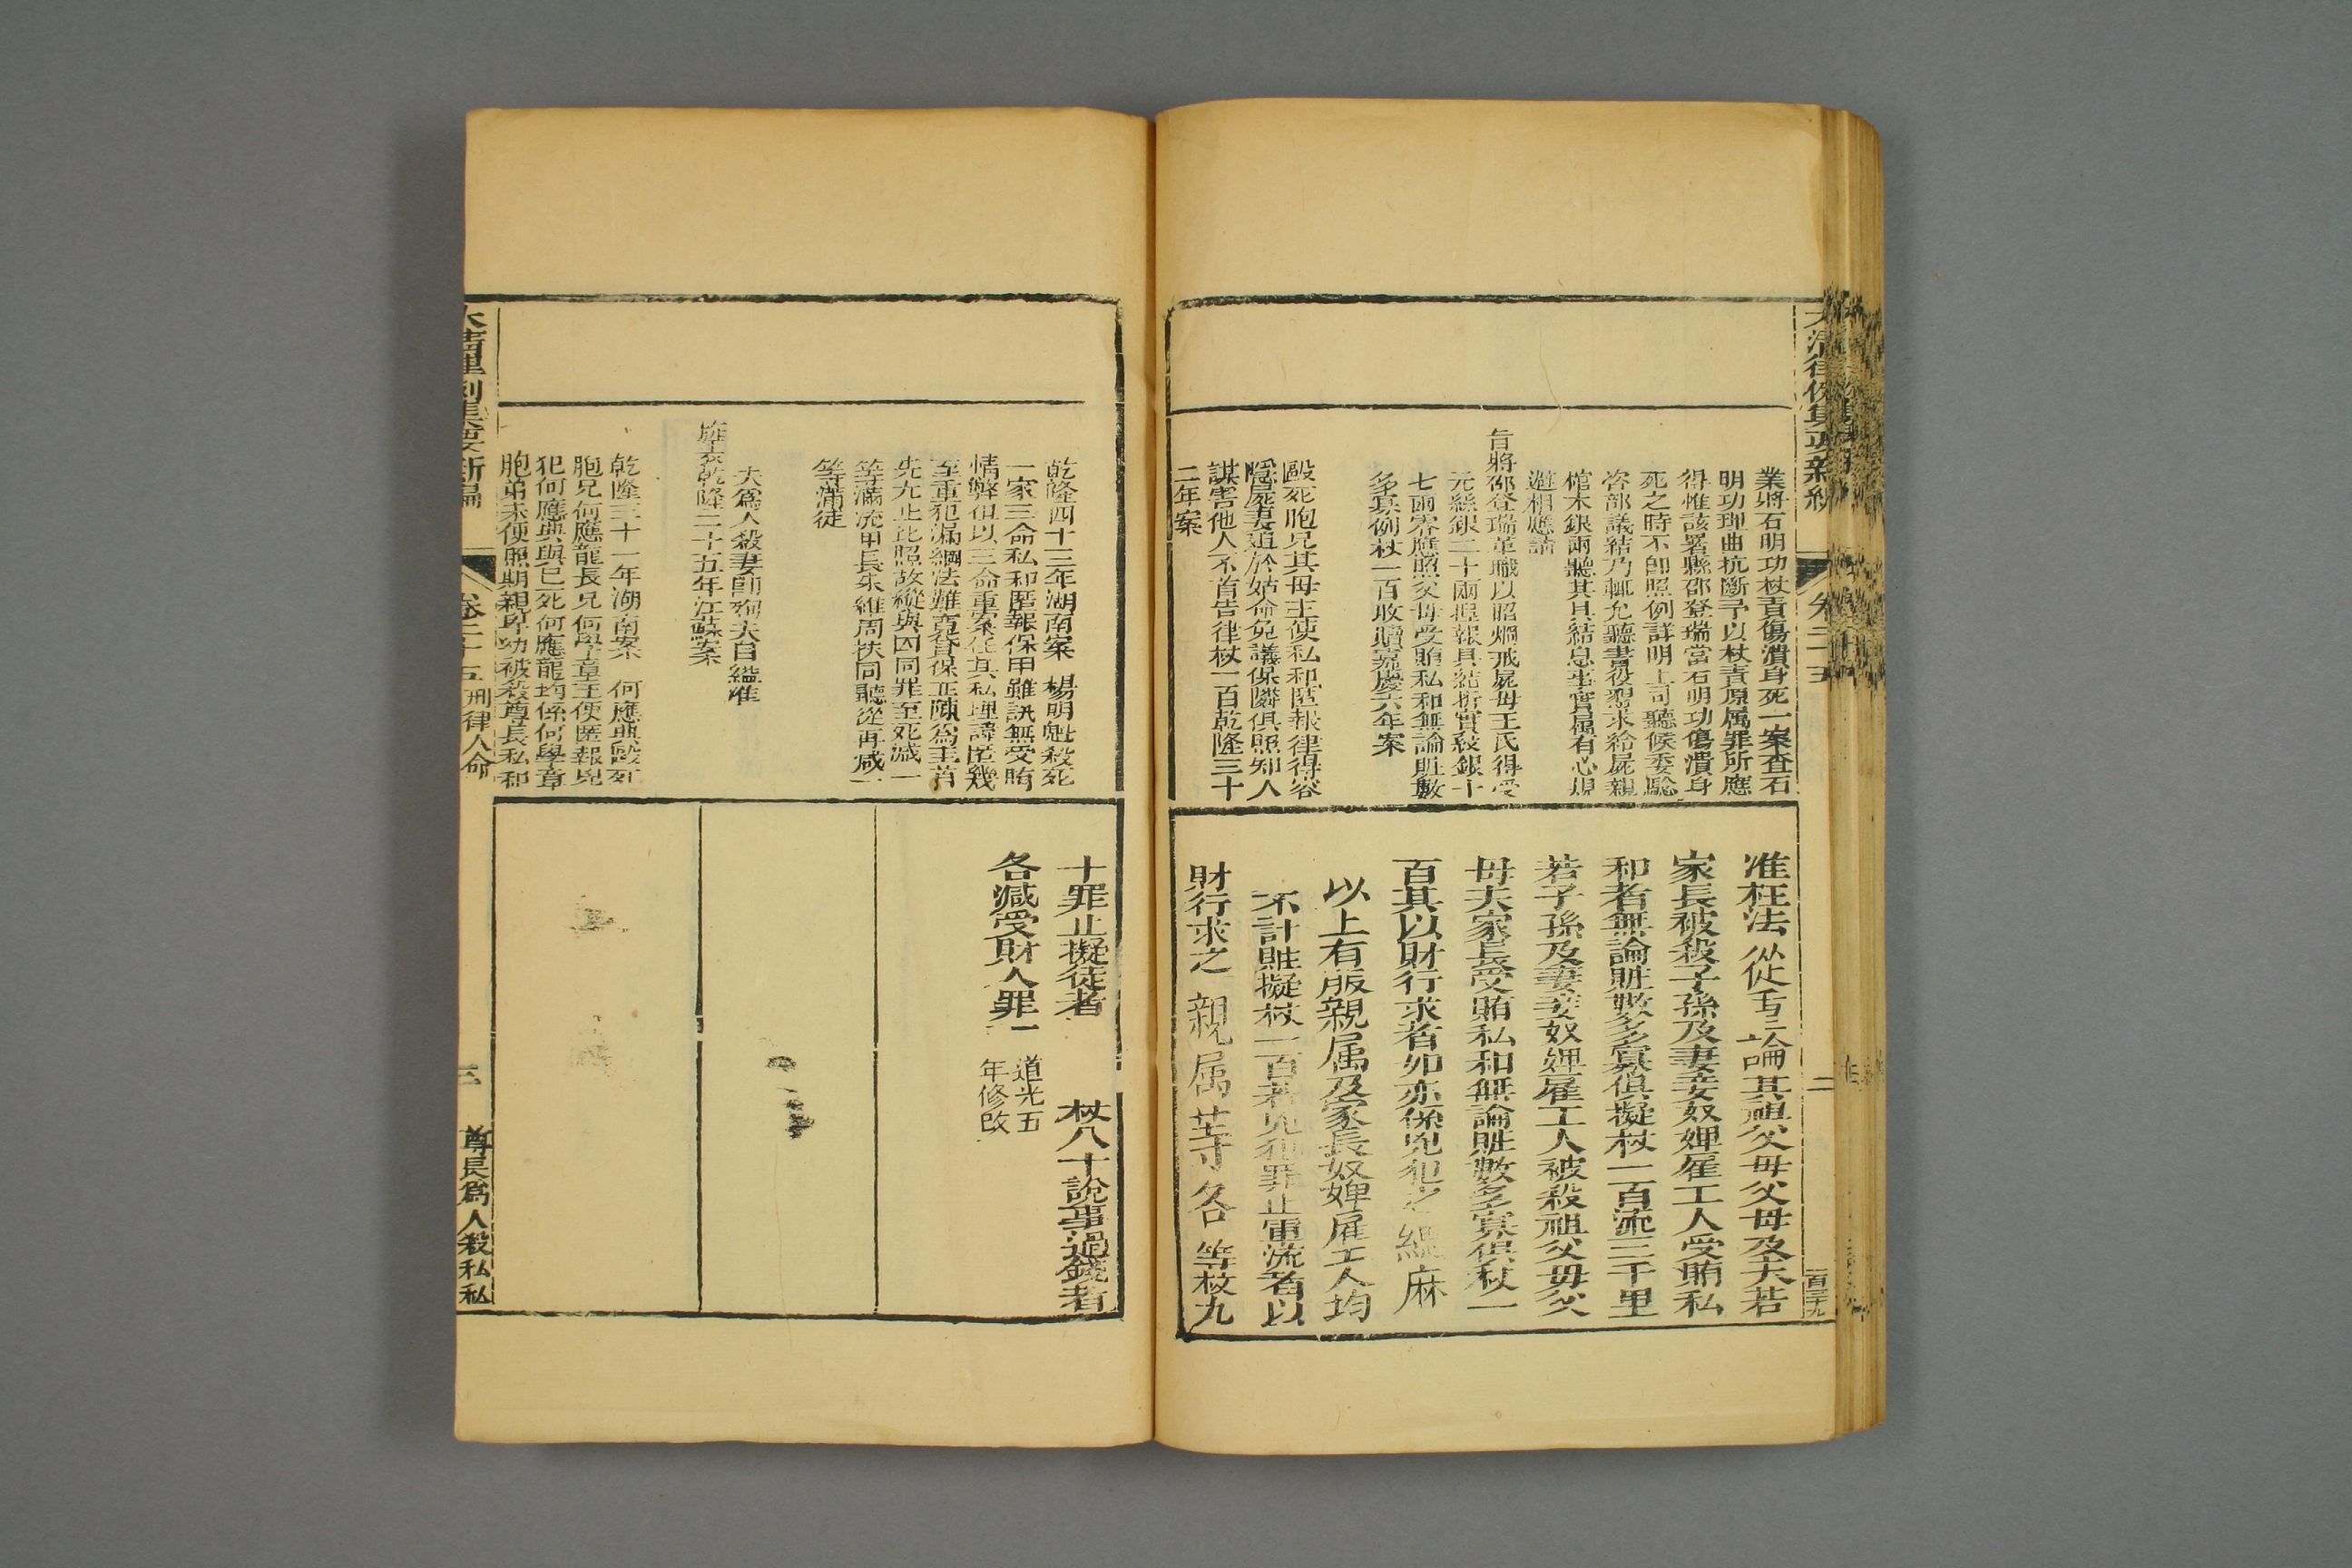 大清律例集要新編
卷二十五
二
一百三十九
業將石明功杖責傷潰身死一案查石
明功理曲抗斷予以杖責原属罪所應
得惟該署縣邵登瑞當石明功傷潰身
死之時不卽照例詳明上司聽候委驗
咨部議結乃輒允聽書役懇求給屍親
棺木銀兩聽其具結息事實属有心規
避相應請
旨將邵登瑞革職以昭烱戒屍母王氏得受
元絲銀二十兩捏報具結折實紋銀十
七兩零應照父母受賄私和無論賍數
多寡例杖一百收贖嘉慶六年案
毆死胞兄其母主使私和匿報律得容
隱屍妻廹於姑命免議保隣俱照知人
謀害他人不首告律杖一百乾隆三十
二年案
准枉法從重論其祖父母父母及夫若
家長被殺子孫及妻妾奴婢雇工人受賄私
和者無論賍數多寡俱擬杖一百流三千里
若子孫及妻妾奴婢雇工人被殺祖父母父
母夫家長受賄私和無論賍數多寡俱杖一
百其以財行求者如亦係兇犯之緦麻
以上有服親属及家長奴婢雇工人均
不計賍擬杖一百若兇犯罪止軍流者以
財行求之親属等各等杖九
乾隆四十三年湖南案 楊明魁殺死
一家三命私和匿報保甲雖訊無受賄
情弊但以三命重案任其私埋諱匿幾
至重犯漏網法難寬貸保正陳為主首
先允止比照故縱與囚同罪至死减一
等滿流甲長朱維周扶同聽從再减一
等滿徒
夫為人殺妻卽殉夫自縊准
旌表乾隆二十五年江蘇案
乾隆三十一年湖南案 何應典毆死
胞兄何應龍長兄何學章主使匿報兇
犯何應典與已死何應龍均係何學章
胞弟未便照期親卑幼被殺尊長私和
十罪止擬徒者 杖八十說事過錢者
各減受財人罪一 道光五
年修改
大清律例集要新編
卷二十五 刑律人命
三 尊長為人殺私私